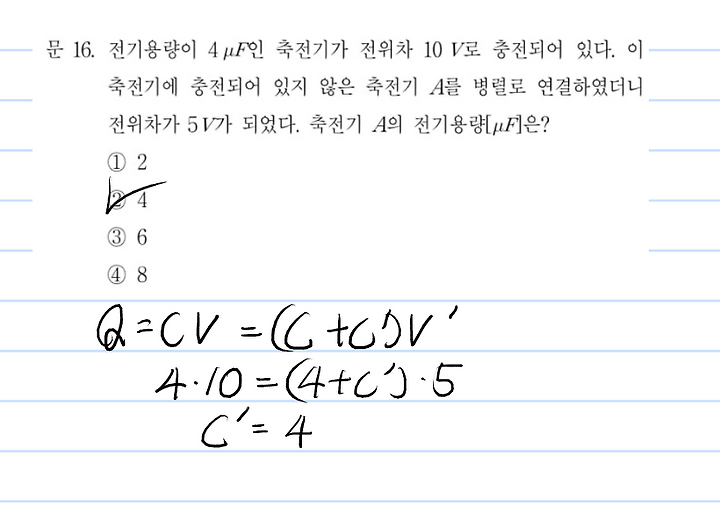 문 16. 전기용량이 4 μF인 축전기가 전위차 10 V로 충전되어 있다. 이
축전기에 충전되어 있지 않은 축전기 A를 병렬로 연결하였더니
전위차가 5 V가 되었다. 축전기 A의 전기용량[μF]은?
① 2
② 4
③ 6
④ 8
Q = CV = (C + C')V'
4·10 = (4+C')·5
C' = 4